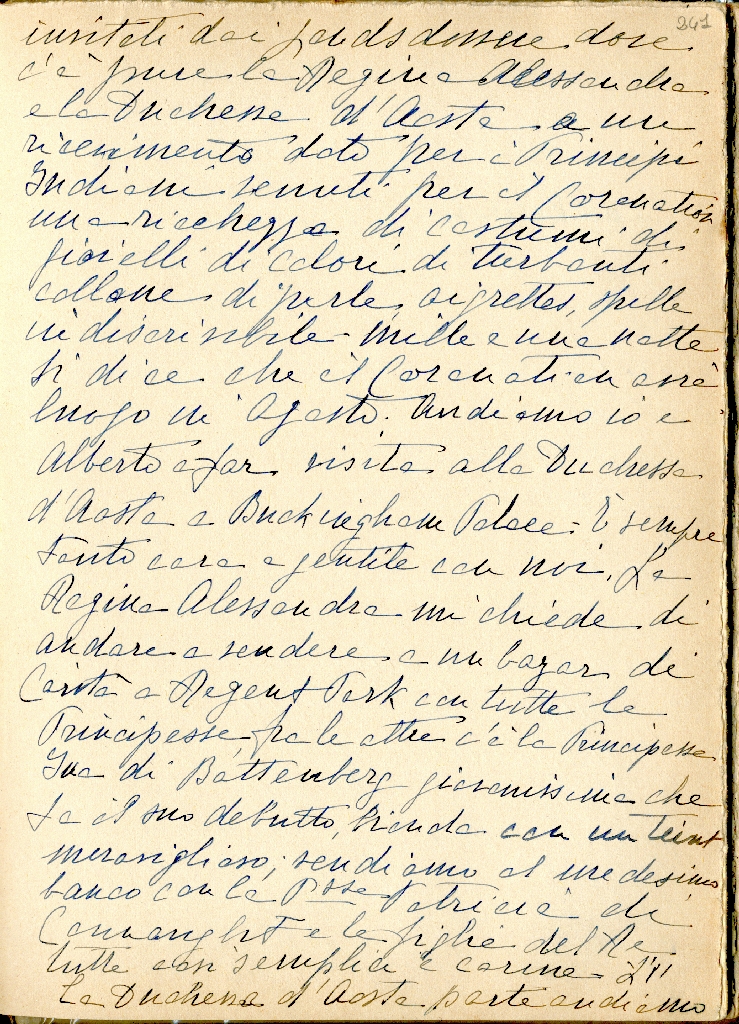 241
invitati dai Lansdowne dove
c'è pure la Regina Alessandra
e la Duchessa d'Aosta a un
ricevimento dato per i Principi
Indiani venuti per il Coronation
una ricchezza di costumi di
gioielli di colori di turbanti
collane di perle, aigrettes, spille
indiscrivibile mille e una notte
si dice che il Coronation avrà
luogo in Agosto. Andiamo io e
Alberto a far visita alla Duchessa
d'Aosta a Buckingham Palace. È sempre
tanto cara e gentile con noi. La
Regina Alessandra mi chiede di
andare a vendere a un bazar di
Carità a Regent Park con tutte le
Principesse, fra le altre c'è la Principessa
Ina di Battenberg giovanissima che
fa il suo debutto, bionda con un teint
meraviglioso; vendiamo al medesimo
banco con la Pssa Patricia di
Connaught e le figlie del Re
tutte così semplici e carine. L'11
la Duchessa d'Aosta parte andiamo